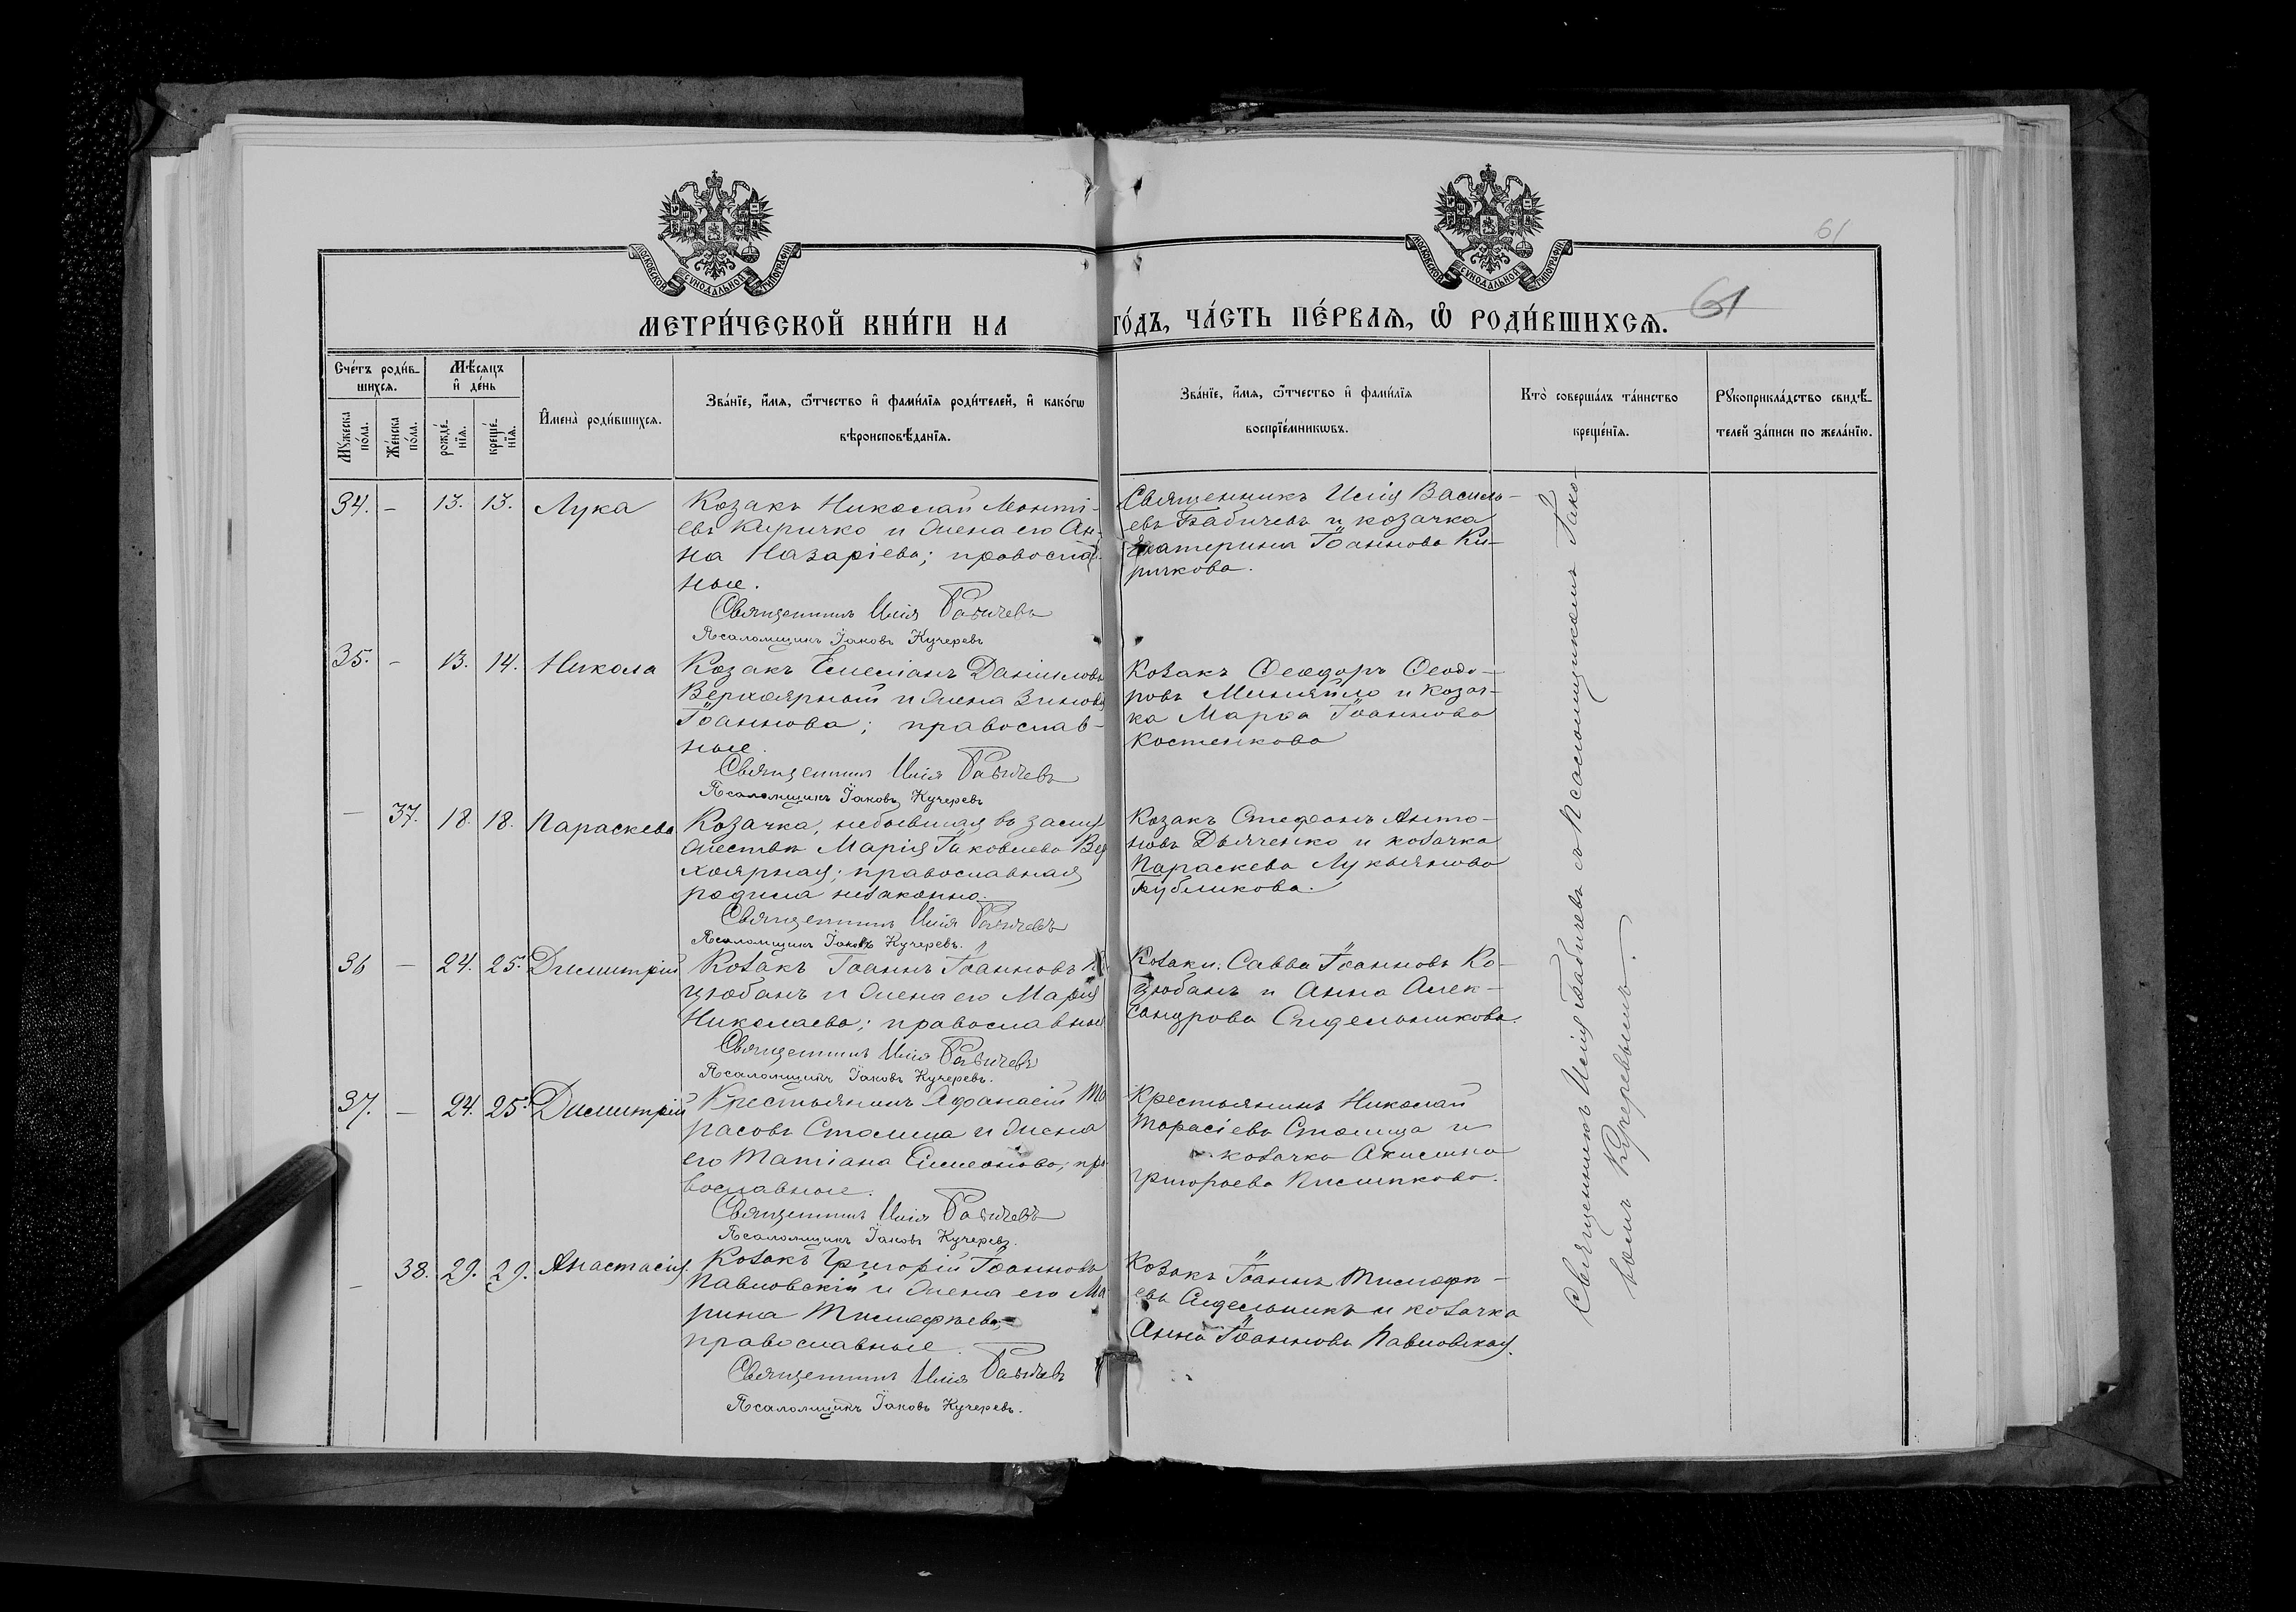 61
МОСКОВСКОЙ СѴНОДАЛЬНОЙ ТИПОГРАФІИ
МОСКОВСКОЙ СѴНОДАЛЬНОЙ ТИПОГРАФІИ
61
МЕТРИ́ЧЕСКОЙ КНИ́ГИ НА ГО́ДЪ, ЧА́СТЬ ПЕ́РВАЯ, Ѡ РОДИ́ВШИХСЯ.
Сче́тъ роди́в-
шихся.
Мѣ́сяцъ
и де́нь
Мꙋ́жеска по́ла.
Же́нска по́ла.
рожде́-
нїя.
креще́-
нїя.
Имена̀ роди́вшихся.
Зва́нїе, и́мя, ѻ́тчество и фами́лїя роди́телей, и како́гѡ
вѣроисповѣ́данїя.
Зва́нїе, и́мя, ѻ́тчество и фами́лїя
воспрїе́мникѡвъ.
Кто̀ соверша́лъ та́инство
креще́нїя.
Рꙋкоприкла́дство свидѣ́-
телей за́писи по жела́нїю.
34. – 13. 13. Лука
Козакъ Николай Монті-
евъ Киричко и жена его Ан-
на Назаріева; православ-
ные.
Священникъ Илія Бабичевъ
Псаломщикъ Іаковъ Кучеревъ
Священникъ Илія Василь-
евъ Бабичевъ и козачка
Екатерина Іоаннова Ки-
ричкова.
35. – 13. 14. Никола
Козакъ Емеліанъ Даніиловъ
Верхоярный и жена Зинов
Іоаннова; православ-
ные.
Священникъ Илія Бабичевъ
Псаломщикъ Іаковъ Кучеревъ
Козакъ Ѳеодоръ Ѳеодо-
ровъ Миняйло и козач-
ка Марѳа Іоаннова
Костенкова
– 37. 18. 18. Параскева
Козачка, небывшая въ заму-
жествѣ Марія Іаковлева Вер
хоярная; православная
родила незаконно.
Священникъ Илія Бабичевъ
Псаломщикъ Іаковъ Кучеревъ.
Козакъ Стефанъ Анто-
новъ Дьяченко и козачка
Параскева Лукьянова
Бубликова.
36 – 24. 25. Димитрій
Козакъ Іоаннъ Іоанновъ К
цюбанъ и жена его Марія
Николаева; православные
Священникъ Илія Бабичевъ
Псаломщикъ Іаковъ Кучеревъ.
Козаки: Савва Іоанновъ Ко-
цюбанъ и Анна Алек-
сандрова Сидельникова.
37. – 24. 25. Димитрій
Крестьянинъ Аѳанасій Та
расовъ Столица и жена
его Татіана Симеонова; пра
вославные.
Священникъ Илія Бабичевъ
Псаломщикъ Іаковъ Кучеревъ.
Крестьянинъ Николай
Тарасіевъ Столица и
козачка Акилина
Григорьева Письменкова.
– 38. 29. 29. Анастасія.
Козакъ Григорій Іоанновъ
Павловскій и жена его Ма
рина Тимоѳѣева;
православные.
Священникъ Илія Бабичевъ
Псаломщикъ Іаковъ Кучеревъ.
Козакъ Іоаннъ Тимоѳѣ-
евъ Сидельникъ и козачка
Анна Іоаннова Павловская.
Священникъ Илія Бабичевъ съ Псаломщикомъ Іако-
вомъ Кучеревымъ.